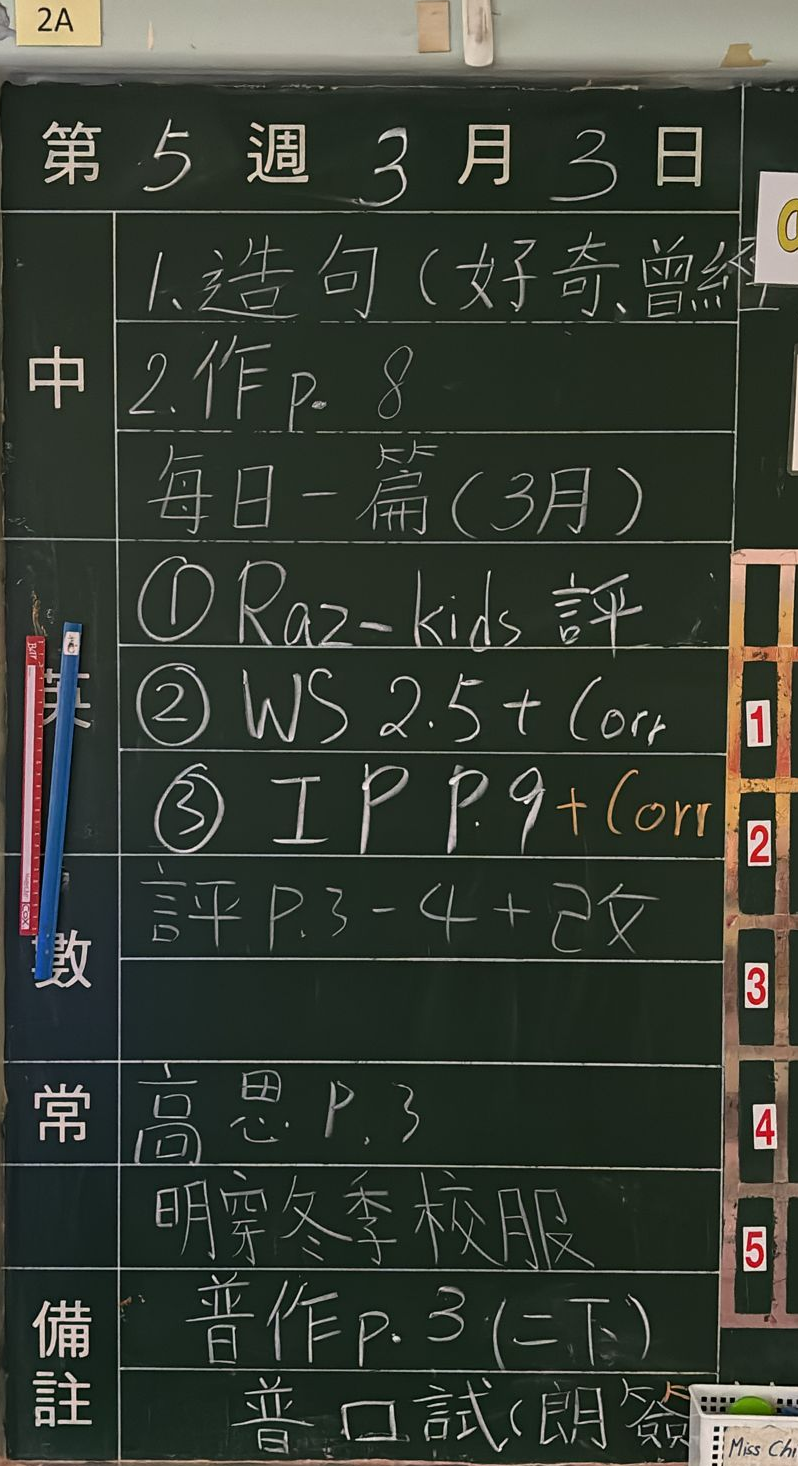 2A
第 5 週 3 月 3 日
中
1. 造句（好奇、曾經
2. 作 p. 8
每日一篇（3月）
英
① Raz-kids 評
② WS 2.5 + Corr
③ I P P.9 + Corr
數
評 P.3 - 4 + 改
常
高思 P.3
明穿冬季校服
備註
普作 p. 3 (二下)
普口試(朗簽
1
2
3
4
5
Miss Chi